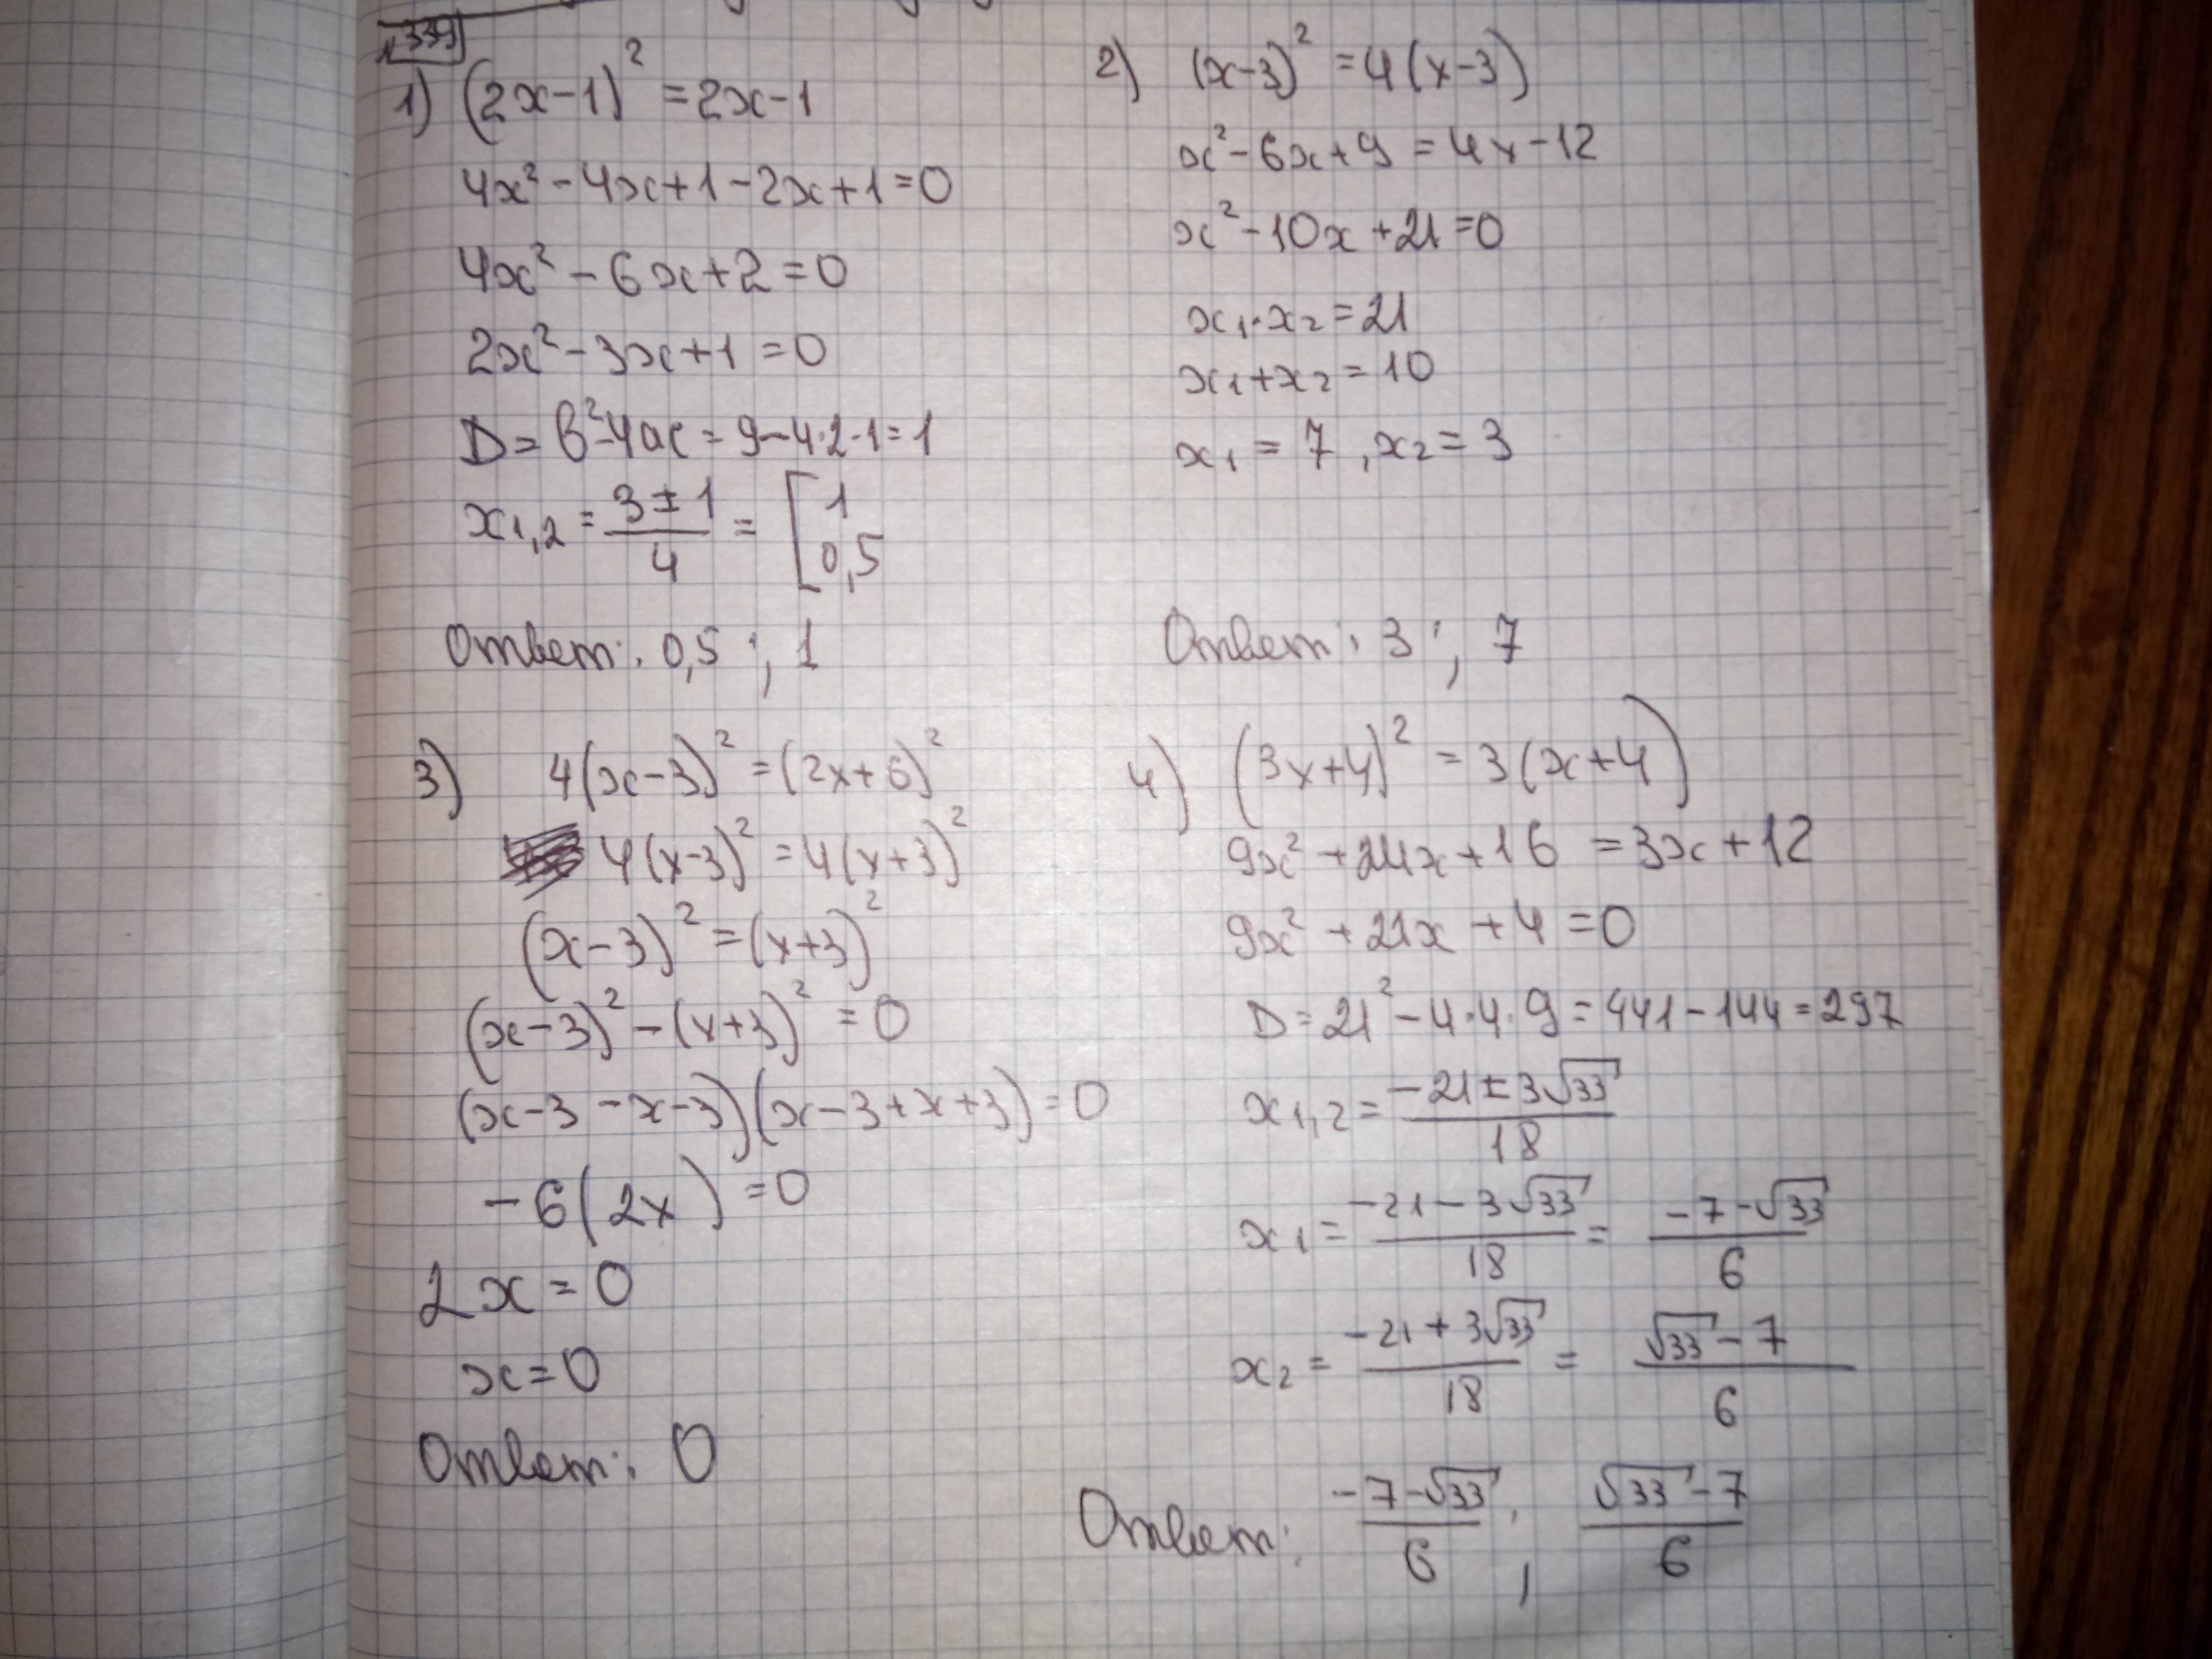 339
1) (2x-1)² = 2x-1
4x² - 4x + 1 - 2x + 1 = 0
4x² - 6x + 2 = 0
2x² - 3x + 1 = 0
D = b² - 4ac = 9 - 4·2·1 = 1
x₁,₂ = (3 ± 1)/4 = [1
0,5
Ответ: 0,5 ; 1
2) (x-3)² = 4(x-3)
x² - 6x + 9 = 4x - 12
x² - 10x + 21 = 0
x₁·x₂ = 21
x₁ + x₂ = 10
x₁ = 7, x₂ = 3
Ответ: 3 ; 7
3) 4(x-3)² = (2x+6)²
4(x-3)² = 4(x+3)²
(x-3)² = (x+3)²
(x-3)² - (x+3)² = 0
(x-3-x-3)(x-3+x+3) = 0
-6(2x) = 0
2x = 0
x = 0
Ответ: 0
4) (3x+4)² = 3(x+4)
9x² + 24x + 16 = 3x + 12
9x² + 21x + 4 = 0
D = 21² - 4·4·9 = 441 - 144 = 297
x₁,₂ = (-21 ± 3√33)/18
x₁ = (-21 - 3√33)/18 = (-7 - √33)/6
x₂ = (-21 + 3√33)/18 = (√33 - 7)/6
Ответ: (-7 - √33)/6 ; (√33 - 7)/6